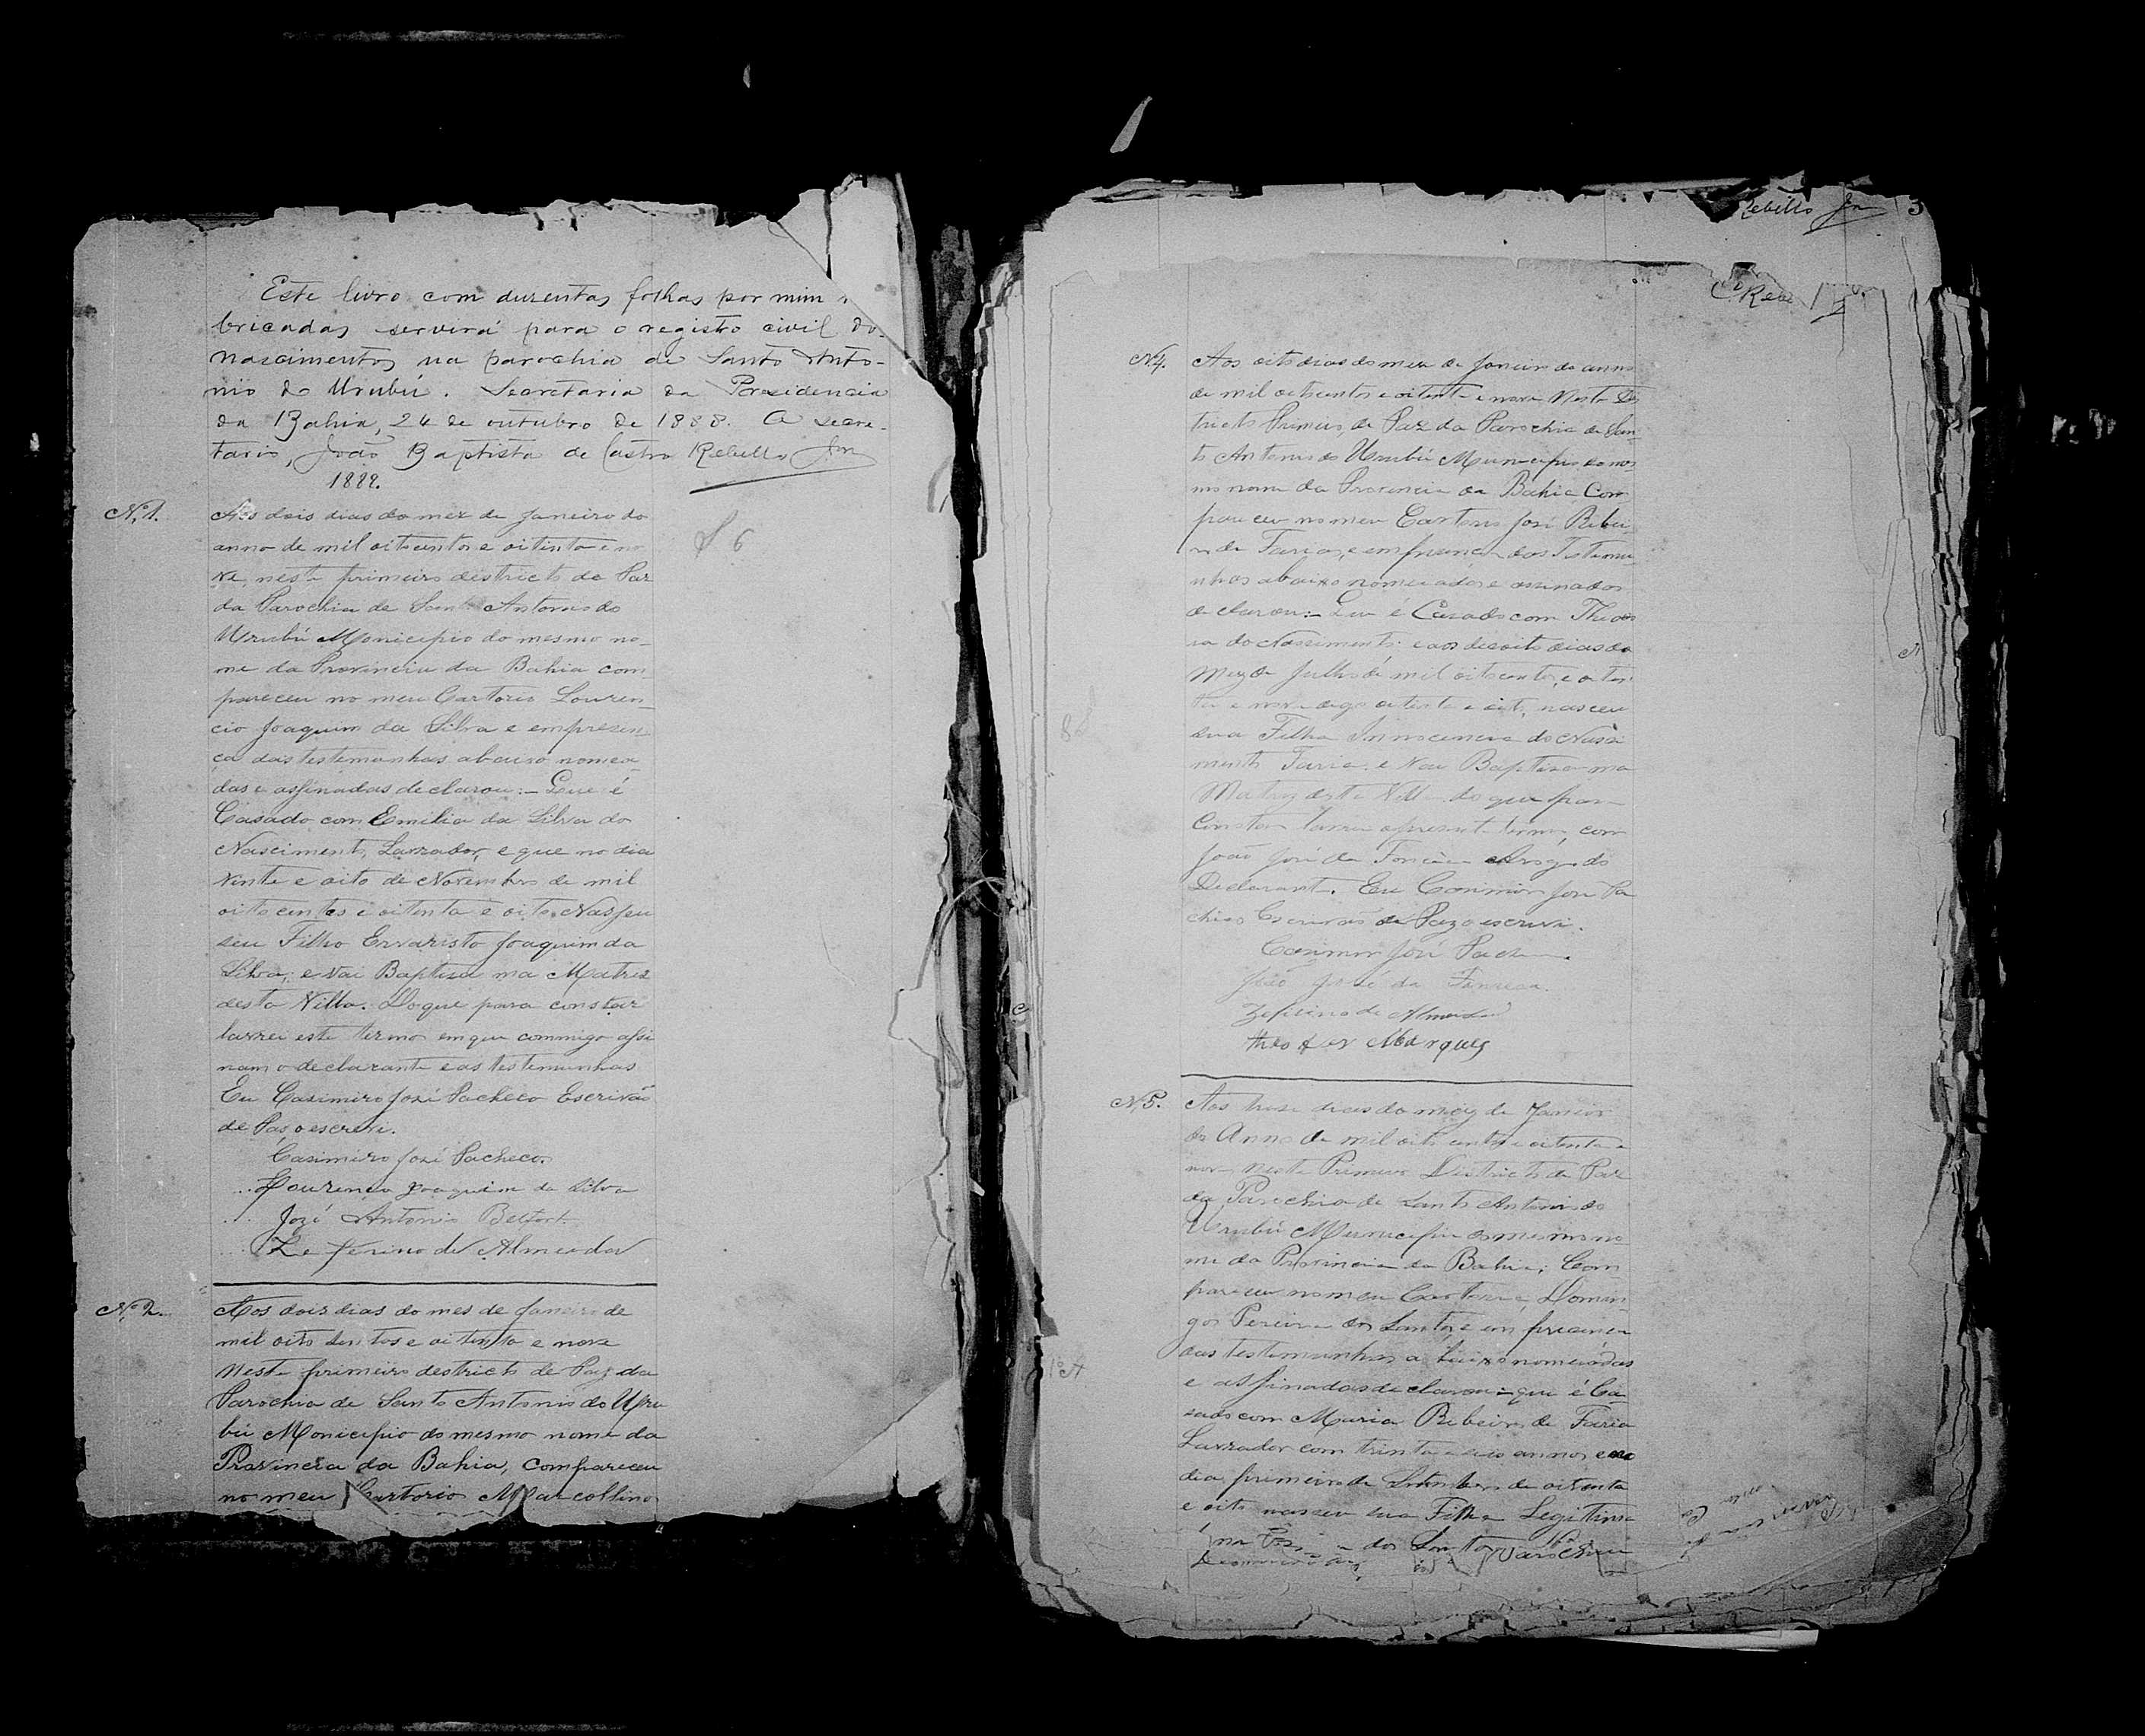 Este livro com duzentas folhas por mim
bricadas servirá para o registo civil do
nascimentos na parochia de Santo Anto-
nio do Urubú. Secretaria da Presidencia
da Bahia, 24 de outubro de 1888. O secre-
tario, João Baptista de Castro Rebello Jor
1889.
Nº 1.
Aos dois dias do mez de Janeiro do
anno de mil oitocentos e oitenta e no
ve, neste primeiro destricto de Paz
da Parochia de Santo Antonio do
Urubú Monicipio do mesmo no-
me da Provincia da Bahia com
pareceu no meu Cartorio Louren-
cio Joaquim da Silva e em presen-
ça das testemunhas abaixo nomea-
das e assinadas declarou:- Que é
Casado com Emilia da Silva do
Nascimento, Lavrador, e que no dia
vinte e oito de Novembro de mil
oitocentos e oitenta e oito Nasseu
seu Filho Ervaristo Joaquim da
Silva; e vai Baptisa na Matriz
desta Villa. Do que para constar
lavrei este termo em que commigo assi
nam o declarante e as testemunhas
Eu Casimiro José Pacheco Escrivão
de Paz o escrevi.
Casimiro José Pacheco.
Lourenco Joaquim da Silva
Jozé Antonio Belfort
Zeferino de Almeida
S 6
Nº 2.
Aos dois dias do mes de Janeiro de
mil oito sentos e oitenta e nove
neste primeiro destricto de Paz da
Parochia de Santo Antonio do Uru
bú Monicipio do mesmo nome da
Provincia da Bahia, compareceu
no meu Cartorio Marcollino
Rebello Jor 3
Cº Rebe
N4.
Aos oito dias do mez de Janeiro do anno
de mil oitocentos e oitenta e nove Nesto Des
tricto Primeiro, de Paz da Parochia de San-
to Antonio do Urubú Municipio do mes-
mo nome da Provincia da Bahia Com
pareceu no meu Cartorio José Ribei-
ro de Faria, e em presença das Testemu-
nhas abaixo nomeiados e assinados
declarou:- Que é Casado com Theodo
ra do Nascimento e aos dezoito dias do
Mez de Julho de mil oitocentos e oiten
ta e nove digo oitenta e oito, nasceu
sua Filha Innocencia do Nasci
mento Faria e Vai Baptisa na
Matriz desta Villa do que para
constar lavrei o presente termo, com
João José da Fonseca Arogo do
Declarante. Eu Casimiro José Pa
checo Escrivão de Paz o escrevi.
Casimiro José Pacheco.
João José da Fonseca.
Zeferino de Almeida
Marques
N5.
Aos treze dias do mez de Janeiro
do Anno de mil oito centos e oitenta e
nove neste Primeiro Destricto de Paz
da Parochia de Santo Antonio do
Urubú Municipio do mesmo no-
me da Provincia da Bahia; Com-
pareceu no meu Cartorio, Domin-
gos Pereira dos Santos, e em presença
das testemunhas abaixo nomeiadas
e assinadas declarou:- que é Ca-
sado com Maria Ribeiro de Faria
Lavrador com trinta e annos e no
dia primeiro de Setembro de oitenta
e oito nasceu sua Filha Legitima
dos Santos